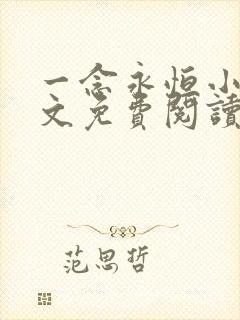 一念永恒小
文免費閱讀
范思哲